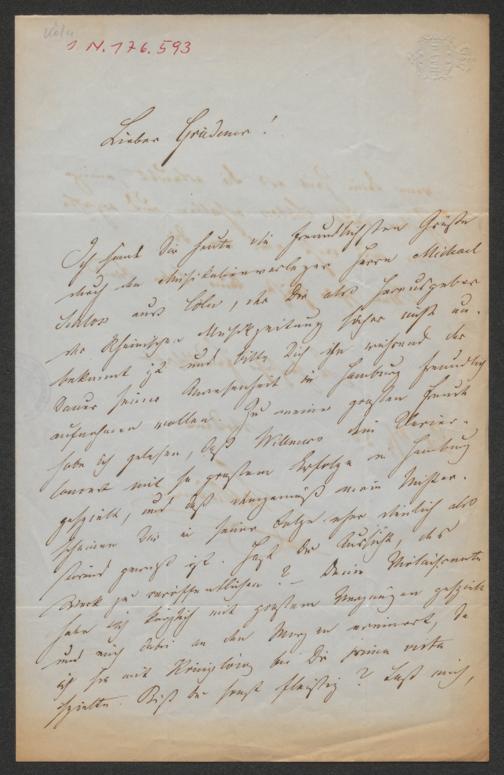 1 N. 176.593
Lieber Grädener!
Ich sende Dir heute die freundlichsten Grüße
durch den Musikalienverleger Herrn Michael
Schloss aus Cöln, der Dir als Herausgeber
der Rheinischen Musikzeitung sicher nicht un-
bekannt ist und bitte Dich ihn während der
Dauer seiner Anwesenheit in Hamburg freundlich
aufnehmen zu wollen. Zu meiner großen Freude
habe ich gelesen, daß Willmers mein Clavier-
concert mit so großem Erfolge in Hamburg
gespielt, und daß demgemäß mein
scheinen Dir in seiner Folge eher dienlich als
störend gewesen ist. Hast Du Aussicht, das
Werk zu veröffentlichen? – Deine Violinsonate
habe ich kürzlich mit großem Vergnügen gespielt
und mich dabei an den Morgen erinnert, da
ich sie mit Königslöw bei Dir prima vista
spielte. Bist Du sonst fleißig? Laß mich,